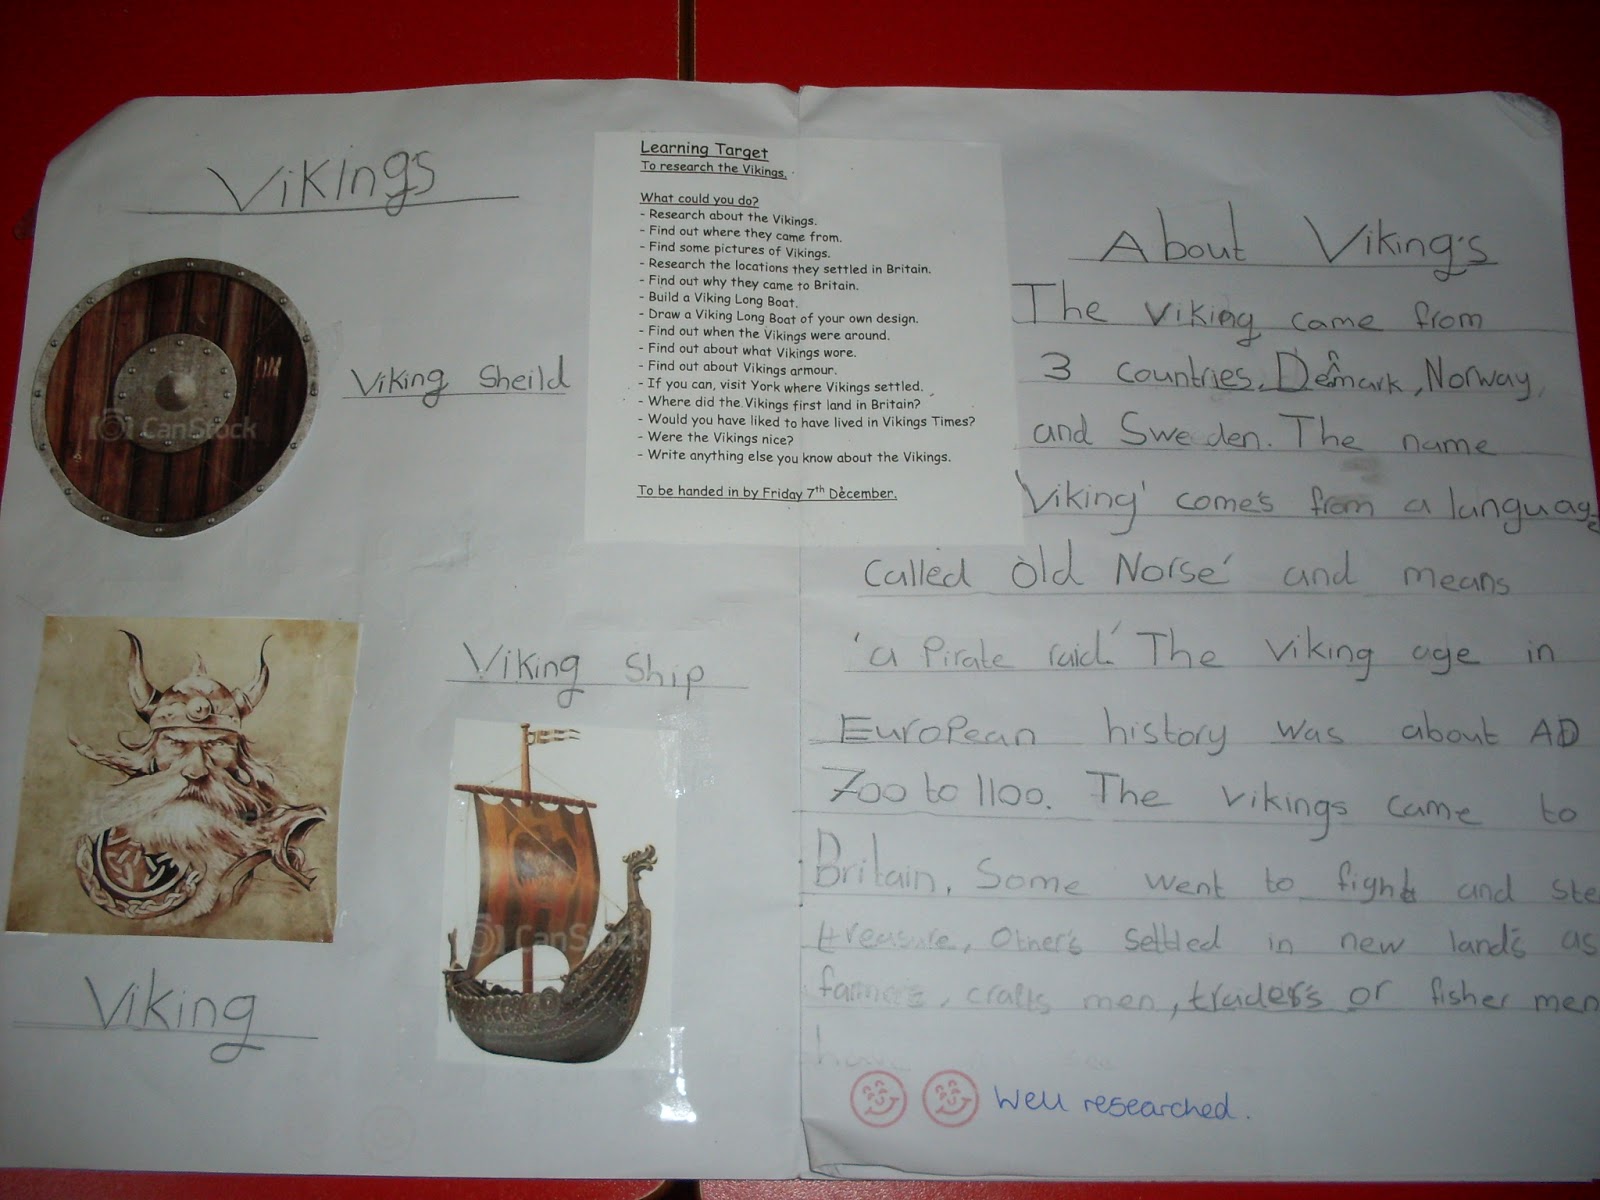 Vikings
CanStock
Viking Sheild
Viking
Viking Ship
CanStock
Learning Target
To research the Vikings.
What could you do?
- Research about the Vikings.
- Find out where they came from.
- Find some pictures of Vikings.
- Research the locations they settled in Britain.
- Find out why they came to Britain.
- Build a Viking Long Boat.
- Draw a Viking Long Boat of your own design.
- Find out when the Vikings were around.
- Find out about what Vikings wore.
- Find out about Vikings armour.
- If you can, visit York where Vikings settled.
- Where did the Vikings first land in Britain?
- Would you have liked to have lived in Vikings Times?
- Were the Vikings nice?
- Write anything else you know about the Vikings.
To be handed in by Friday 7th December.
About Viking's
The Viking came from
3 countries, Demark, Norway,
and Sweden. The name
'Viking' come's from a language
called 'old Norse' and means
'a Pirate raid.' The Viking age in
European history was about AD
700 to 1100. The Vikings came to
Britain, Some went to fight and ste
treasure, Other's settled in new land's as
crafts men, trader's or fisher men
Well researched.